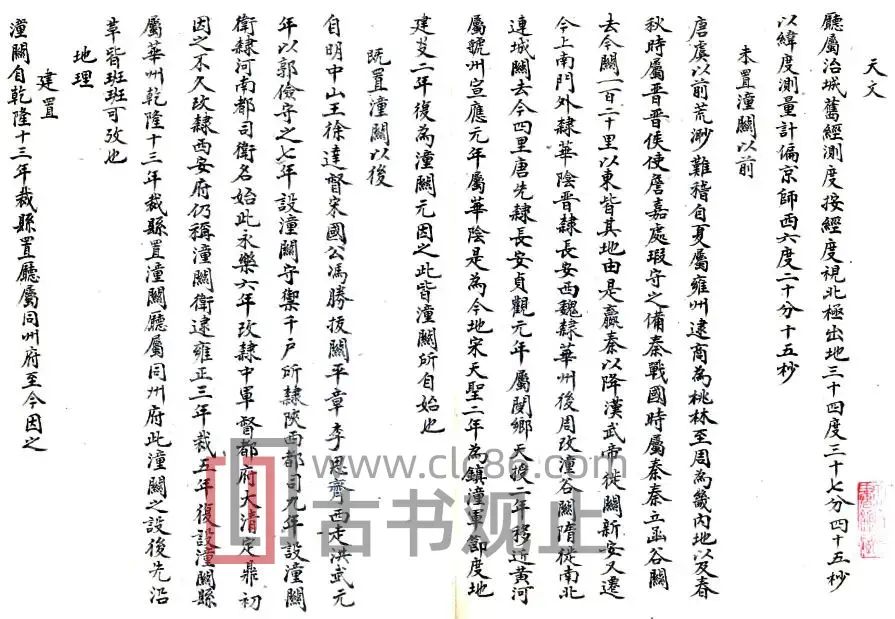 天文
廳屬治城舊經測度按經度視北極出地三十四度三十七分四十五秒
以緯度測量計偏京師西六度二十分十五秒
未置潼關以前
唐虞以前荒渺難稽自夏屬雍州逮商為桃林至周為畿內地以及春
秋時屬晉晉侯使詹嘉處瑕守之備秦戰國時屬秦秦立函谷關
去今關一百二十里以東皆其地由是嬴秦以降漢武帝徙關新安又遷
今上南門外隸華陰晉隸長安西魏隸華州後周改潼谷關隋徙南北
連城關去今四里唐先隸長安貞觀元年屬閿鄉天授二年移近黃河
屬虢州宣應元年屬華陰是為今地宋天聖二年為鎮潼軍節度地
建炎二年復為潼關元因之此皆潼關所自始也
既置潼關以後
自明中山王徐達督宋國公馮勝拔關平章李思齊西走洪武元
年以郭儉守之七年設潼關守禦千戶所隸陝西都司九年設潼關
衛隸河南都司衛名始此永樂六年改隸中軍督都府大清定鼎初
因之不久改隸西安府仍稱潼關衛逮雍正三年裁五年復設潼關縣
屬華州乾隆十三年裁縣置潼關廳屬同州府此潼關之設後先沿
革皆班班可攷也
地理
建置
潼關自乾隆十三年裁縣置廳屬同州府至今因之
www.clc86.com
古书观止